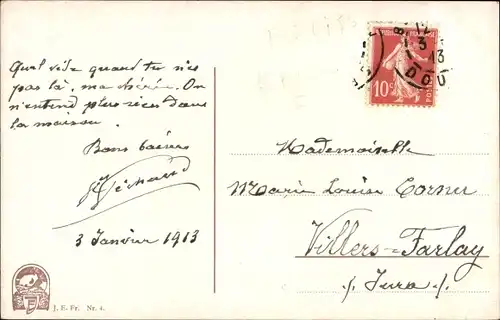 Quel vide quand tu n'es
pas là, ma chérie. On
n'entend plus rien dans
la maison.
Bons baisers
3 Janvier 1913
Mademoiselle
Marie Louise Corner
Villers-Farlay
Jura
10c
POSTES
3
13
DOU
J. E. Fr. Nr. 4.